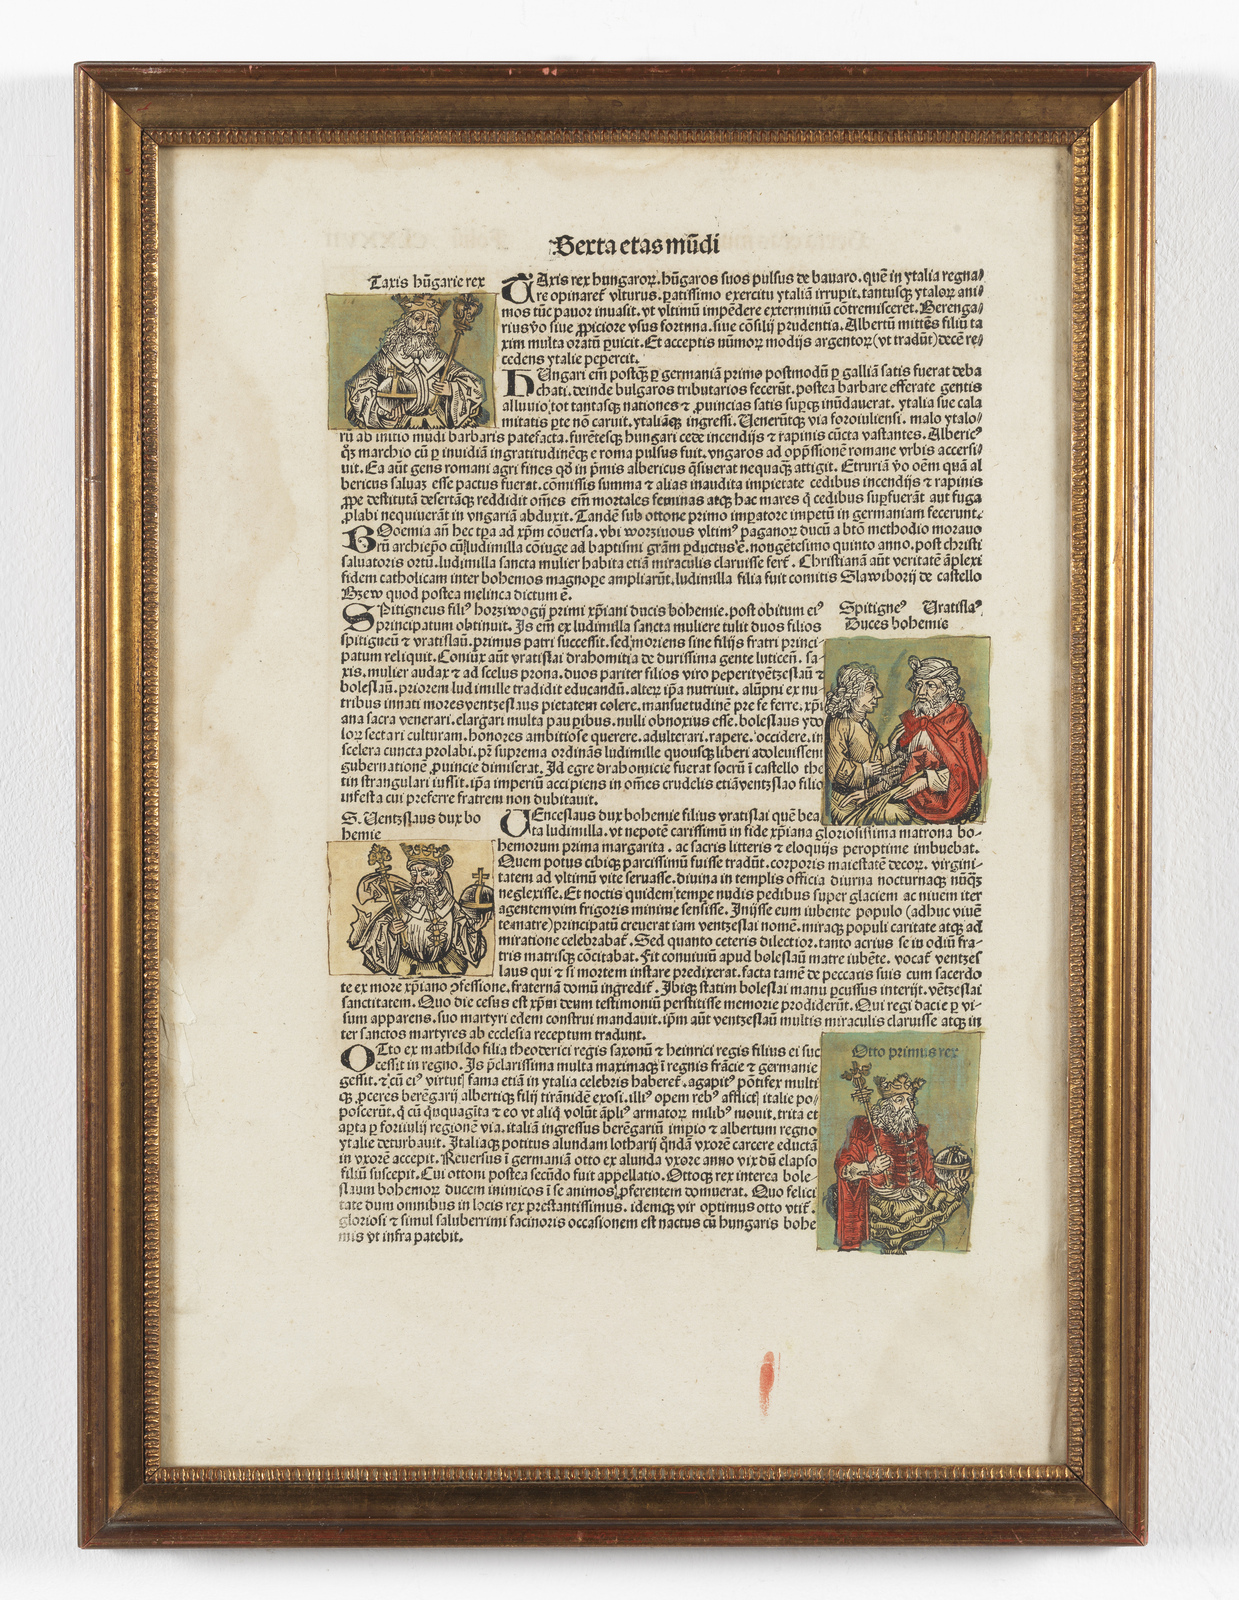 Sexta etas mūdi
Taxis hūgarie rex
TAxis rex hungaroꝝ. hūgaros suos pulsus de bauaro. quē in ytalia regna⸗
re opinaret vlturus. ꝑatissimo exercitu ytaliā irrupit. tantusqꝫ ytaloꝝ ani⸗
mos tūc pauor inuasit. vt vltimū impēdere exterminiū cōtremisceret. Berenga⸗
rius v̄o siue ꝓpiciore vsus fortuna. siue cōsilij prudentia. Albertū mittēs filiū ta
xim multa oratū ꝑuicit. Et acceptis nūmoꝝ modijs argentoꝝ (vt tradūt) decē re⸗
cedens ytalie pepercit.
HUngari em̄ postqꝫ ꝑ germaniā primo postmodū ꝑ galliā satis fuerat deba
chati. deinde bulgaros tributarios fecerūt. postea barbare efferate gentis
alluuio tot tantasqꝫ nationes ⁊ ꝓuincias satis suꝑqꝫ inūdauerat. ytalia sue cala
mitatis ꝑte nō caruit. ytaliāqꝫ ingressi. Uenerūtqꝫ via foroiuliensi. malo ytalo⸗
rū ab initio mūdi barbaris patefacta. furētesqꝫ hungari cede incendijs ⁊ rapinis cūcta vastantes. Alberic⁹
qͦs marchio cū ꝑ inuidiā ingratitudinēqꝫ e roma pulsus fuit. vngaros ad opp̄ssionē romane vrbis accersi⸗
uit. Ea aūt gens romani agri fines qͦd in p̄mis albericus q̄siuerat nequaqꝫ attigit. Etruriā v̄o oēm quā al
bericus saluaꝫ esse pactus fuerat. cōmissis summa ⁊ alias inaudita impietate cedibus incendijs ⁊ rapinis
ꝓpe destitutā desertāqꝫ reddidit om̄es em̄ mortales feminas atqꝫ hac mares q̄ cedibus suꝑfuerāt aut fuga
ꝓlabi nequiuerāt in vngariā abduxit. Tandē sub ottone primo imꝑatore impetū in germaniam fecerunt.
BOoemia añ hec tꝑa ad xp̄m cōuersa. vbi worziuous vltim⁹ paganoꝝ ducū a btō methodio morauo
rū archiep̄o cū ludimilla cōiuge ad baptismi grām ꝑductus ē. nongētesimo quinto anno. post christi
saluatoris ortū. ludimilla sancta mulier habita etiā miraculis claruisse fert. Christianā aūt veritatē āplexi
fidem catholicam inter bohemos magnoꝑe ampliarūt. ludimilla filia fuit comitis Slawiborij de castello
Bzew quod postea melinca dictum ē.
Spitigne⁹ Uratisla⁹
Duces bohemie
SPitigneus fili⁹ horziwogij primi xp̄iani ducis bohemie. post obitum ei⁹
principatum obtinuit. Is em̄ ex ludimilla sancta muliere tulit duos filios
spitigneū ⁊ vratislaū. primus patri successit. sed moriens sine filijs fratri princi⸗
patum reliquit. Coniux aūt vratislai drahomitia de durissima gente luticeñ. sa⸗
xis. mulier audax ⁊ ad scelus prona. duos pariter filios viro peperit vētzeslaū ⁊
boleslaū. priorem ludimille tradidit educandū. alterꝫ ip̄a nutriut. alūpni ex nu
tribus innati mores ventzeslaus pietatem colere. mansuetudinē pre se ferre. xp̄i
ana sacra venerari. elargari multa pauꝑibus. nulli obnoxius esse. boleslaus ydo
loꝝ sectari culturam. honores ambitiose querere. adulterari. rapere. occidere. in
scelera cuncta prolabi. pr̄ suprema ordinās ludimille quousqꝫ liberi adoleuissent
gubernationē ꝓuincie dimiserat. Id egre drahomicie fuerat socrū ī castello the
tin strangulari iussit. ip̄a imperiū accipiens in om̄es crudelis etiā ventzslao filio
infesta cui preferre fratrem non dubitauit.
S. Uentzslaus dux bo
hemie
UEnceslaus dux bohemie filius vratislai quē bea
ta ludimilla. vt nepotē carissimū in fide xp̄iana gloriosissima matrona bo⸗
hemorum prima margarita. ac sacris litteris ⁊ eloquijs peroptime imbuebat.
Quem potus cibiqꝫ parcissimū fuisse tradūt. corporis maiestatē decoꝝ. virgini⸗
tatem ad vltimū vite seruasse. diuina in templis officia diurna nocturnaqꝫ nūqꝫ
neglexisse. Et noctis quidem tempe nudis pedibus super glaciem ac niuem iter
agentem vim frigoris minime sensisse. Inijsse eum iubente populo (adhuc viuē
te matre) principatū creuerat iam ventzeslai nomē. miraqꝫ populi caritate atqꝫ ad
miratione celebrabat. Sed quanto ceteris dilectior. tanto acrius se in odiū fra⸗
tris matrisqꝫ cōcitabat. Fit conuiuiū apud boleslaū matre iubēte. vocat ventzes
laus qui ⁊ si mortem instare predixerat. facta tamē de peccatis suis cum sacerdo
te ex more xp̄iano ꝯfessione. fraternā domū ingredit. Ibiqꝫ statim boleslai manu ꝑcussus interijt. vētzeslai
sanctitatem. Quo die cesus est xp̄m deum testimoniū perstitisse memorie prodiderūt. Qui regi dacie ꝑ vi⸗
sum apparens. suo martyri edem construi mandauit. ip̄m aūt ventzeslaū multis miraculis claruisse atqꝫ in
ter sanctos martyres ab ecclesia receptum tradunt.
Otto primus rex
OTto ex mathildo filia theoderici regis saxonū ⁊ heinrici regis filius ei suc
cessit in regno. Is p̄clarissima multa maximaqꝫ ī regnis frācie ⁊ germanie
gessit. ⁊ cū ei⁹ virtutꝭ fama etiā in ytalia celebris haberet. agapit⁹ pōtifex multi
qꝫ ꝓceres berēgarij albertiqꝫ filij tirānidē exosi. ill⁹ opem reb⁹ afflictꝭ italie po⸗
poscerūt. q̄ cū q̄nquagīta ⁊ eo vt aliq̄ volūt āpl⁹ armatoꝝ milib⁹ mouit. trita et
apta ꝑ foriuilij regionē via. italiā ingressus berēgariū impio ⁊ albertum regno
ytalie deturbauit. Italiaqꝫ potitus alundam lotharij qͦndā vxorē carcere eductā
in vxorē accepit. Reuersus ī germaniā otto ex alunda vxore anno vixdū elapso
filiū suscepit. Cui ottoni postea secūdo fuit appellatio. Ottoqꝫ rex interea bole⸗
slaum bohemoꝝ ducem inimicos ī se animos ꝑferentem domuerat. Quo felici
tate dum omnibus in locis rex prestantissimus. idemqꝫ vir optimus otto vtit.
gloriosi ⁊ simul saluberrimi facinoris occasionem est nactus cū hungaris bohe
mis vt infra patebit.